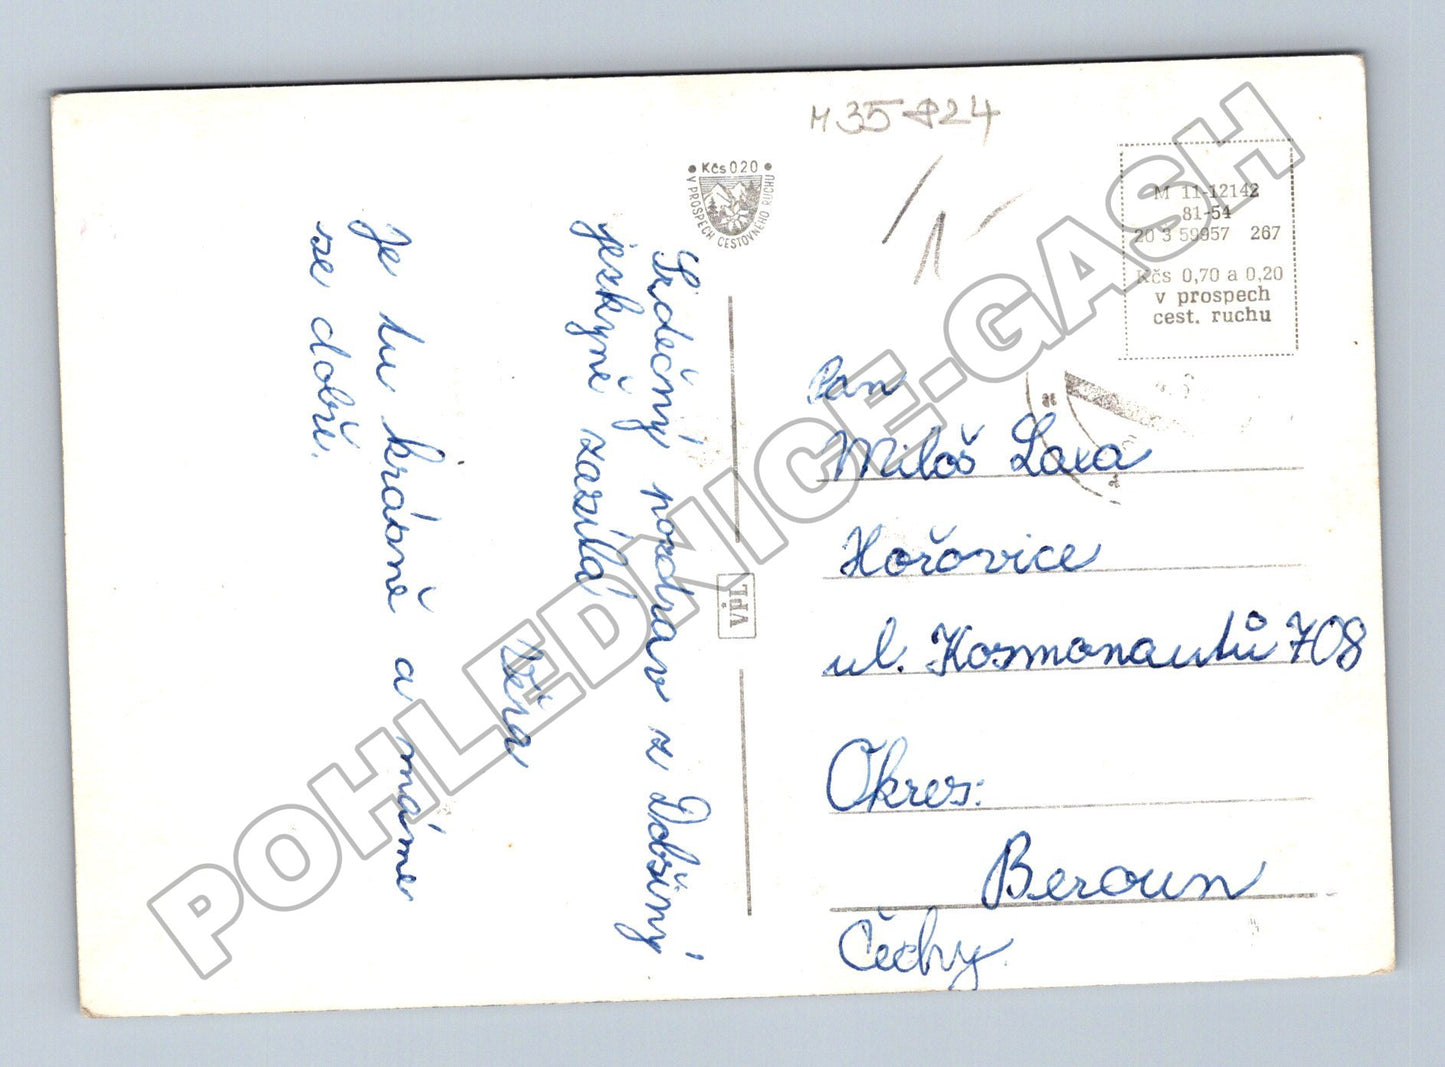 M 35 24
Kčs 0.20
V PROSPECH CESTOVNÉHO RUCHU
M 11-12142
81-54
20 3 59957 267
Kčs 0,70 a 0,20
v prospech
cest. ruchu
Srdečný pozdrav z Dobšiný
jeskyně zasílá
Věra
Je tu krásně a máme
se dobře.
VPL
Pan
Miloš Laxa
Hořovice
ul. Kosmonautů 708
Okres:
Beroun
Čechy
POHLEDNICE-GASH